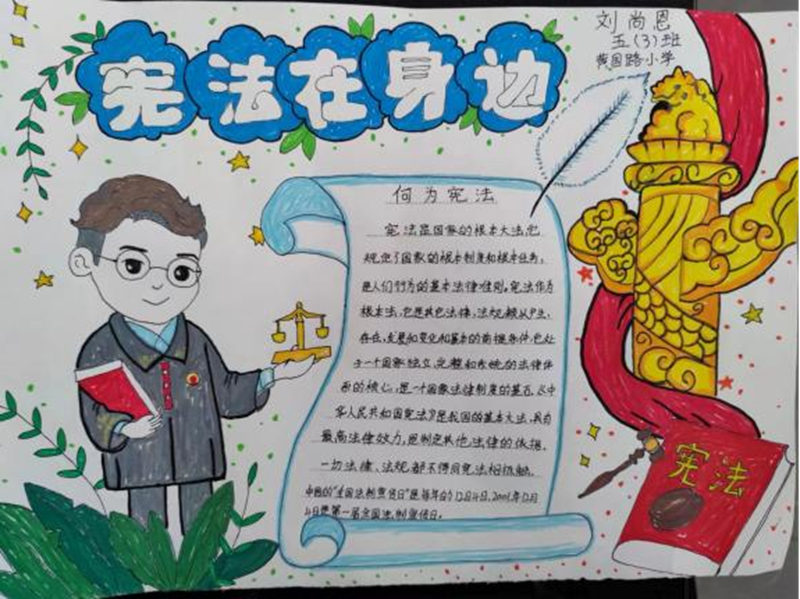 宪法在身边
刘尚恩
五(3)班
黄国路小学
何为宪法
宪法是国家的根本大法,它
规定了国家的根本制度和根本任务,
是人们行为的基本法律准则。宪法作为
根本法,它是其它法律,法规赖以产生、
存在、发展和变化和基本的前提条件,它处
于一个国家独立、完整和系统的法律体
系的核心,是一个国家法律制度的基石。《中
华人民共和国宪法》是我国的基本大法,具有
最高法律效力,是制定其他法律的依据,
一切法律、法规都不得同宪法相抵触。
中国的"全国法制宣传日"是每年的12月4日,2001年12月
4日是第一届全国法制宣传日。
宪法